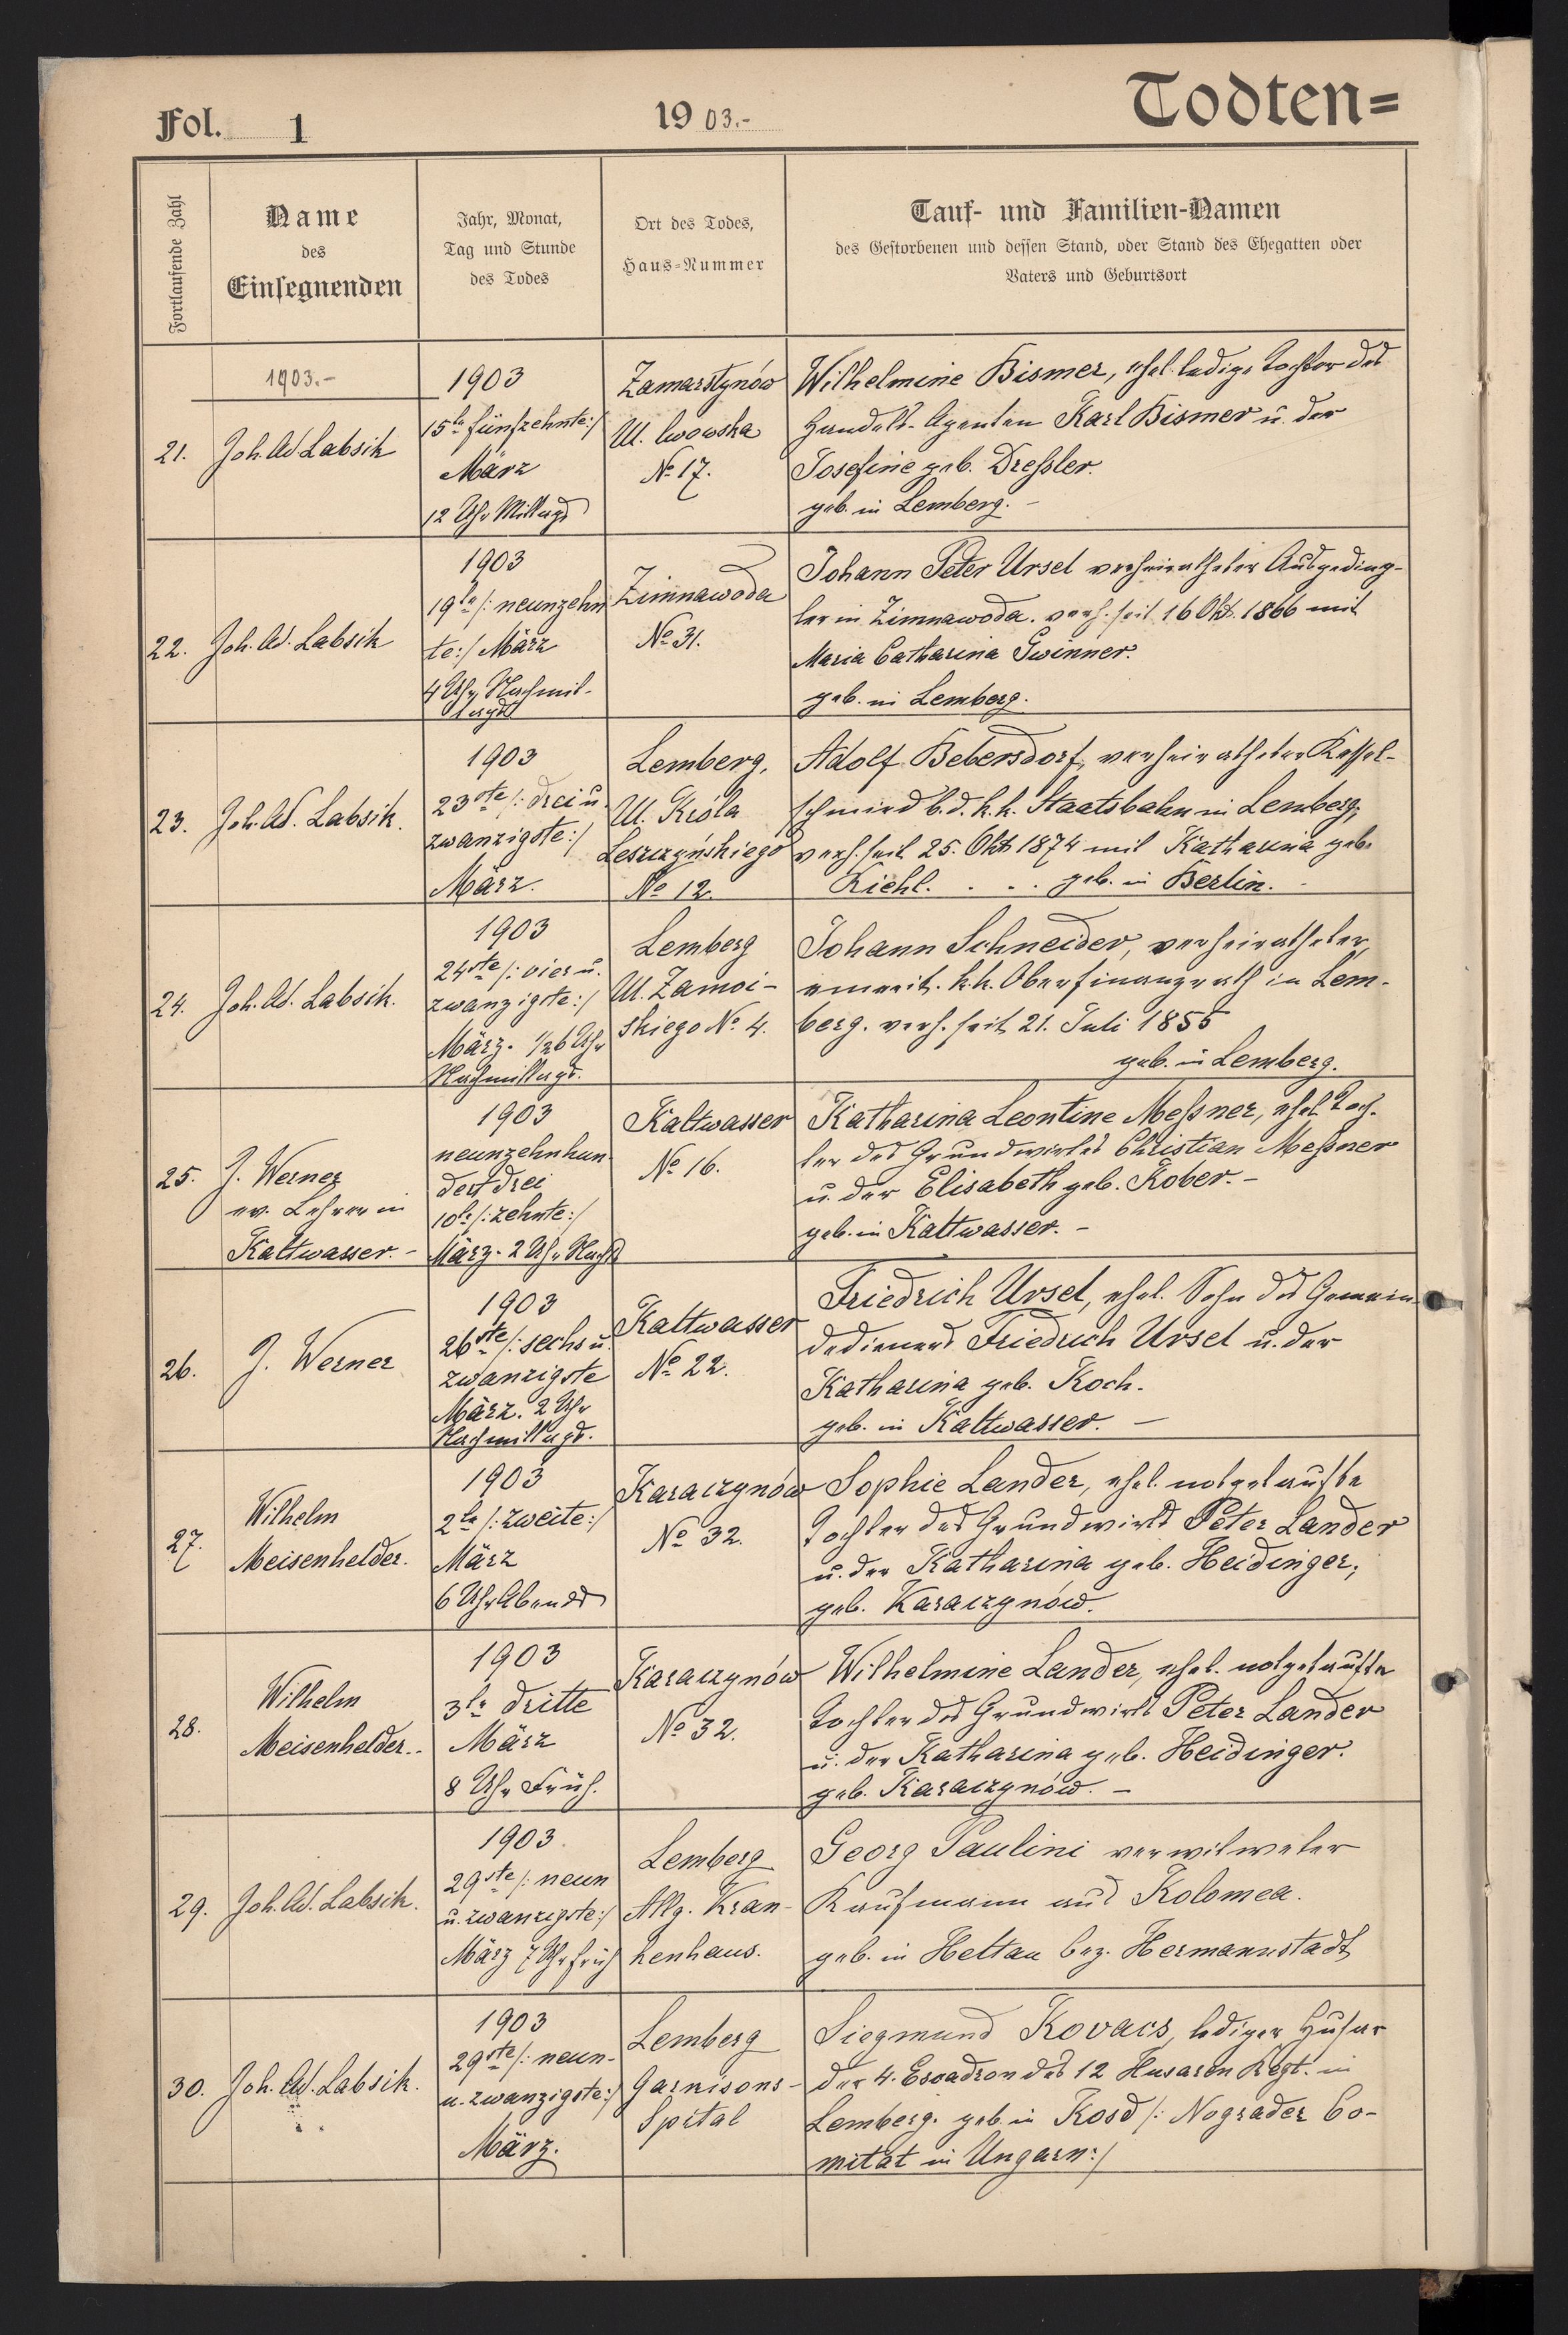 Fol. 1
1903.-
Todten=
Fortlaufende Zahl
Name
des
Einsegnenden
Jahr, Monat,
Tag und Stunde
des Todes
Ort des Todes,
Haus-Nummer
Tauf- und Familien-Namen
des Gestorbenen und dessen Stand, oder Stand des Ehegatten oder
Vaters und Geburtsort
1903.-
21.
Joh. Ad Labsik
1903
15te fünfzehnte:/
März
12 Uhr Mittags
Zamarstynów
Ul. lwowska
No 17.
Wilhelmine Bismer, ehel. ledige Tochter des
Handels-Agenten Karl Bismer u. der
Josefine geb. Dreßler.
geb. in Lemberg. -
22.
Joh. Ad. Labsik
1903
19te /: neunzehn
te:/ März
4 Uhr Nachmit-
tags
Zimnawoda
No 31.
Johann Peter Ursel verheiratheter Ausgeding-
ler in Zimnawoda. verh. seit 16 Okt. 1866 mit
Maria Catharina Gwinner.
geb. in Lemberg.
23.
Joh. Ad. Labsik.
1903
23ste /: drei u.
zwanzigste:/
März.
Lemberg,
Ul. Króla
Leszczyńskiego
No 12.
Adolf Bebersdorf, verheiratheter Kessel-
schmied b. d. k. k. Staatsbahn in Lemberg,
verh. seit 25. Okt 1874 mit Katharina geb.
Riehl. . . . geb. in Berlin. -
24.
Joh. Ad. Labsik.
1903
24ste /: vier u.
zwanzigste:/
März. 1/26 Uhr
Nachmittags.
Lemberg
Ul. Zamoi-
skiego No. 4.
Johann Schneider, verheiratheter,
emerit. k. k. Oberfinanzrath in Lem-
berg. verh. seit 21. Juli 1855
geb. in Lemberg.
25.
J. Werner
ev. Lehrer in
Kaltwasser. -
1903
neunzehnhun-
dert drei
10te /: zehnte:/
März. 2 Uhr Nachts
Kaltwasser
No 16.
Katharina Leontine Meßner, ehel. Toch-
ter des Grundwirtes Christian Meßner
u. der Elisabeth geb. Kober. -
geb. in Kaltwasser. -
26.
J. Werner
1903
26ste /: sechs u.
zwanzigste
März. 2 Uhr
Nachmittags.
Kaltwasser
No 22.
Friedrich Ursel, ehel. Sohn des Gemein-
dedieners Friedrich Ursel u. der
Katharina geb. Koch.
geb. in Kaltwasser. -
27.
Wilhelm
Meisenhelder.
1903
2te /: zweite:/
März
6 Uhr Abends
Karaczynów
No 32.
Sophie Lander, ehel. notgetaufte
Tochter des Grundwirts Peter Lander
u. der Katharina geb. Heidinger;
geb. Karaczynów.
28.
Wilhelm
Meisenhelder..
1903
3te dritte
März
8 Uhr Früh.
Karaczynów
No 32.
Wilhelmine Lander, ehel. notgetaufte
Tochter des Grundwirts Peter Lander
u. der Katharina geb. Heidinger.
geb. Karaczynów. -
29.
Joh. Ad. Labsik.
1903.
29ste /: neun
u. zwanzigste:/
März 7 Uhr früh
Lemberg
Allg. Kran-
kenhaus.
Georg Paulini verwitweter
Kaufmann aus Kolomea.
geb. in Heltau bez. Hermannstadt
30.
Joh. Ad. Labsik.
1903
29ste /: neun-
u. zwanzigste:/
März.
Lemberg
Garnisons-
Spital
Siegmund Kovacs, lediger Husar
der 4. Escadron des 12 Husaren Regt. in
Lemberg. geb. in Kosd /: Nograder Co-
mitat in Ungarn:/